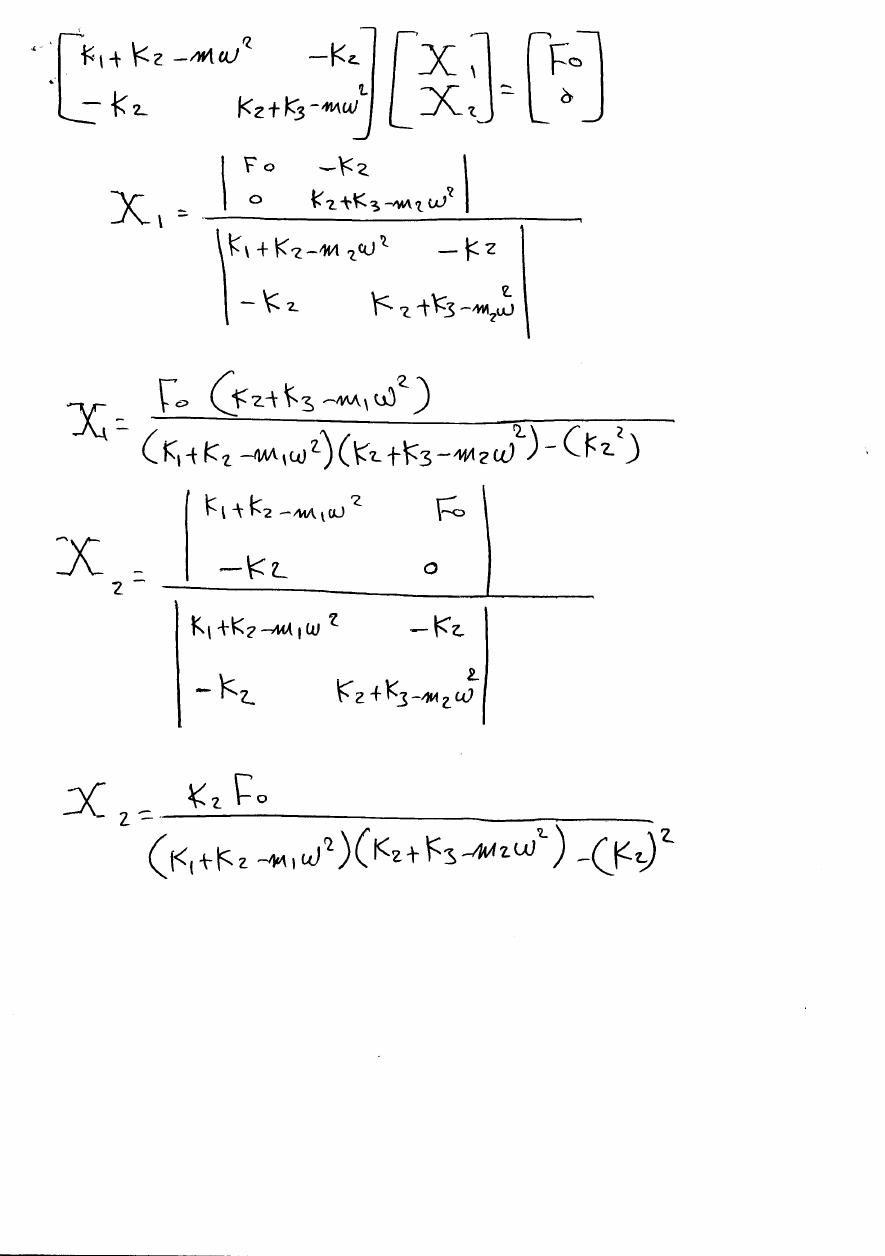 [K₁+K₂-mω² -K₂] [X₁] = [F₀]
[-K₂ K₂+K₃-mω²] [X₂] [0]
| F₀ -K₂ |
X₁ = | 0 K₂+K₃-m₂ω² |
| K₁+K₂-m₂ω² -K₂ |
| -K₂ K₂+K₃-m₂ω² |
X₁ = F₀ (K₂+K₃-m₁ω²)
(K₁+K₂-m₁ω²)(K₂+K₃-m₂ω²)-(K₂²)
| K₁+K₂-m₁ω² F₀ |
X₂ = | -K₂ 0 |
| K₁+K₂-m₁ω² -K₂ |
| -K₂ K₂+K₃-m₂ω² |
X₂ = K₂ F₀
(K₁+K₂-m₁ω²)(K₂+K₃-m₂ω²)-(K₂)²